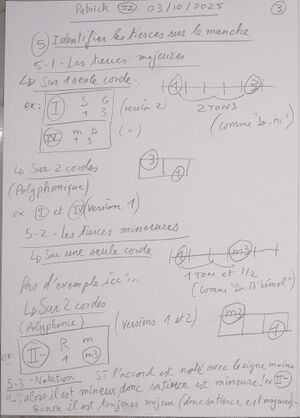 Patrick 03/10/2025 3
5 Identifier les tierces sur le manche
5-1 - Les tierces majeures
↳ Sur 1 seule corde
ex: I S G (version 2) 1 3
1 3 2 TONS
IV m D (") (comme "Do-Mi")
1 3
↳ Sur 2 cordes 3
(Polyphonique) 1
ex I et IV (version 1)
5-2 - Les tierces mineures
↳ Sur une seule corde 1 m3
1 TON et 1/2
Pas d'exemple ici... (comme "Do-Mi bémol")
↳ Sur 2 cordes
(Polyphonie) m3
R m (versions 1 et 2) 1
ex: II- 1 m3
5-3 - Notation Si l'accord est noté avec le signe moins
"-", alors il est mineur donc sa tierce est mineure! ex II-
Sinon il est toujours majeur (donc sa tierce est majeure)